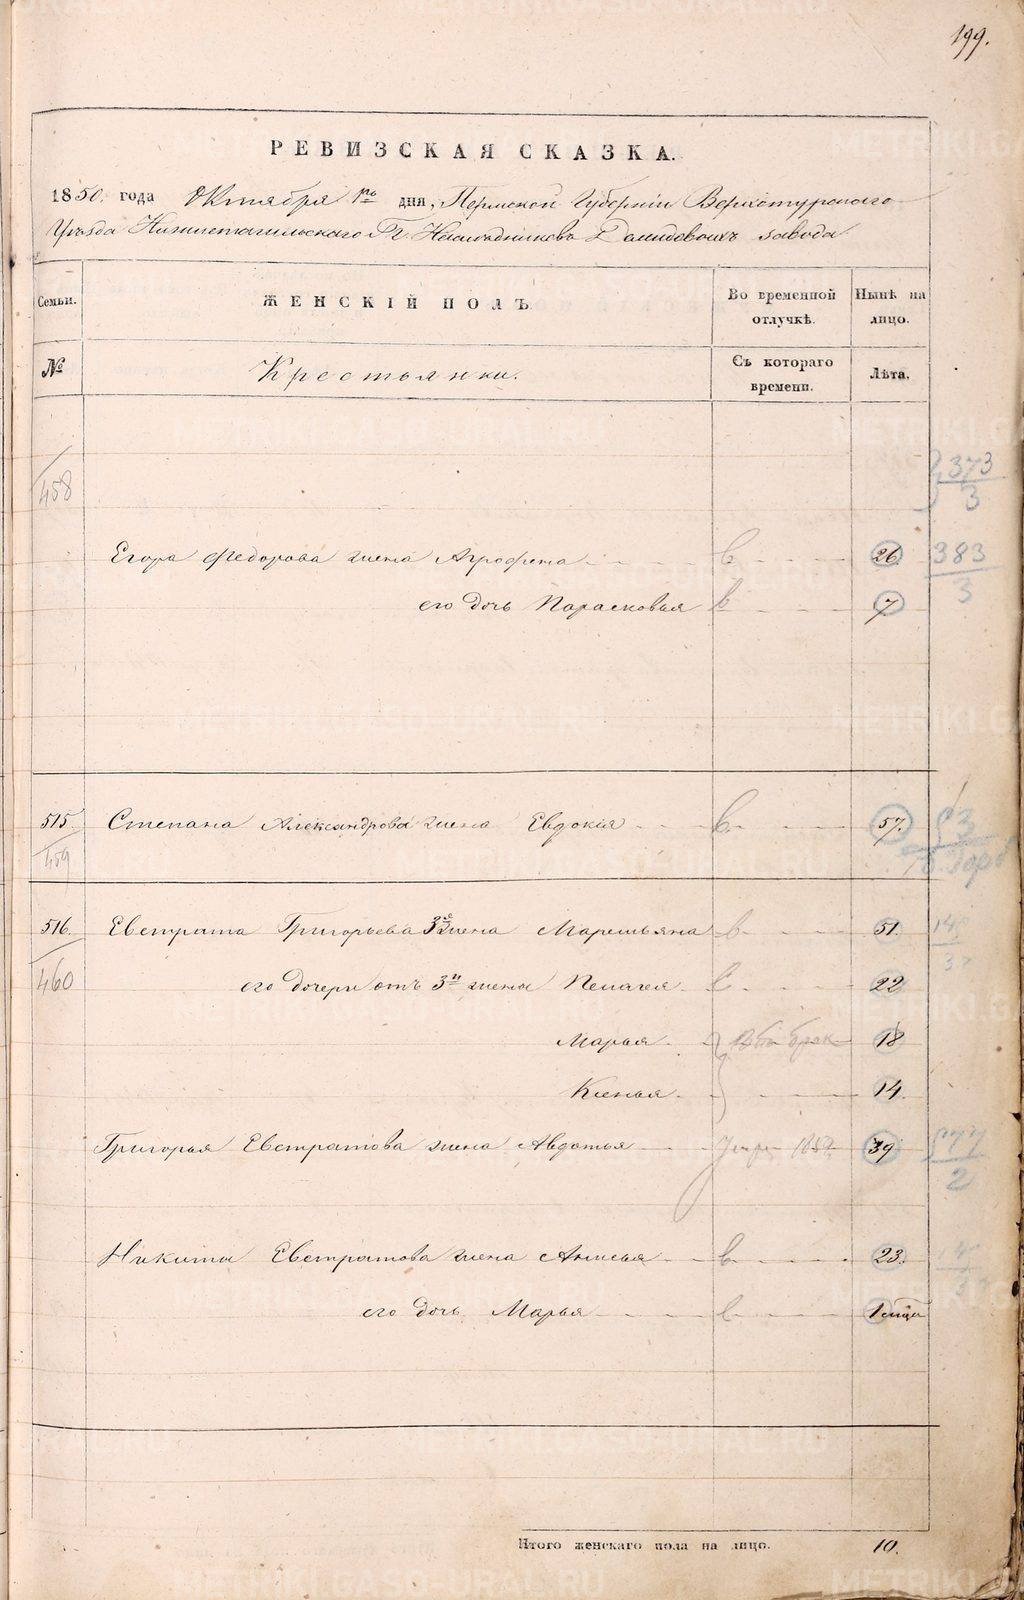 199.
РЕВИЗСКАЯ СКАЗКА.
1850. года Октября дня, Пермской Губерніи Верхотурскаго
Уѣзда Нижнетагильскаго Гг. Наслѣдниковъ Демидовыхъ завода.
Семьи. ЖЕНСКІЙ ПОЛЪ Во временной отлучкѣ. Нынѣ на лицо.
№ Крестьянки. Съ котораго времени. Лѣта.
373
458 3
Егора Федорова жена Агрофена в 26 383
его дочь Парасковья в 7 3
515. Степана Александрова жена Евдокія в 57.
459
516. Евстрата Григорьева 3я жена Маремьяна в 51.
460 его дочери отъ 3й жены Пелагея в 22
Марья 18
Ксенья 14.
Григорья Евстратова жена Авдотья 39
2
Никиты Евстратова жена Анисья в 23.
его дочь Марья в 1 мѣца
Итого женскаго пола на лицо. 10.
METRIKI.GASO-URAL.RU